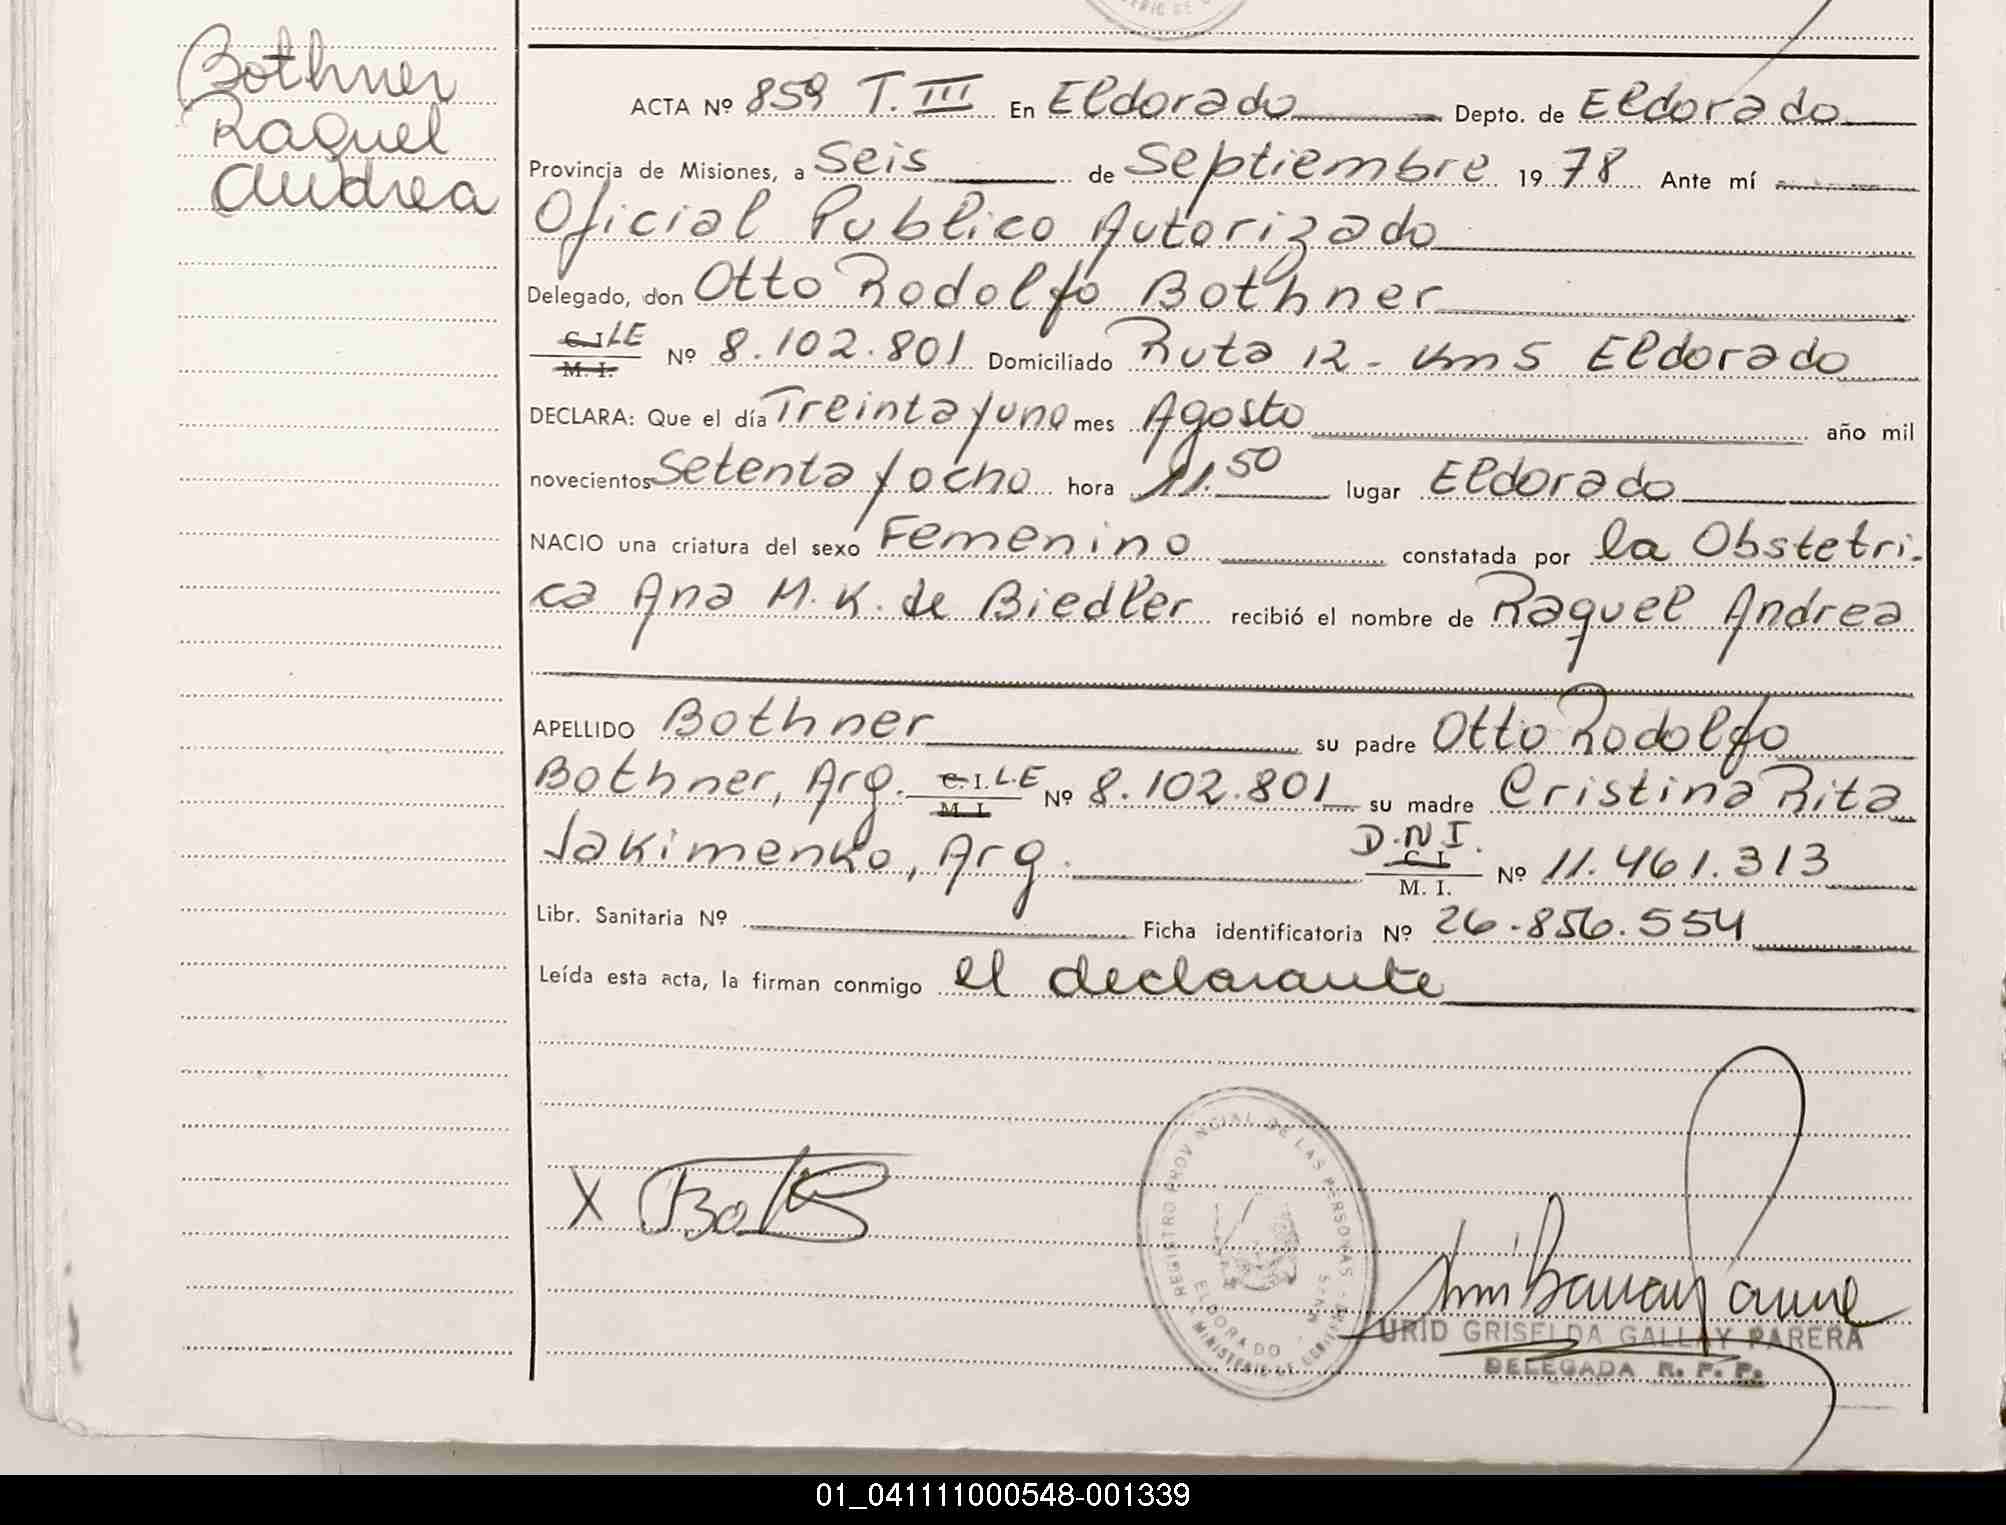 Bothner
Raquel
Andrea
ACTA Nº 859 T. III En Eldorado Depto. de Eldorado
Provincia de Misiones, a Seis de Septiembre 19 78 Ante mí
Oficial Publico Autorizado
Delegado, don Otto Rodolfo Bothner
C.I. LE
M. I.
Nº 8.102.801 Domiciliado Ruta 12 - Km 5 Eldorado
DECLARA: Que el día Treinta y uno mes Agosto año mil
novecientos Setenta y ocho hora 11.50 lugar Eldorado
NACIO una criatura del sexo Femenino constatada por la Obstetri-
ca Ana M. K. de Biedler recibió el nombre de Raquel Andrea
APELLIDO Bothner su padre Otto Rodolfo
Bothner, Arg. C.I. L.E M. I. Nº 8.102.801 su madre Cristina Rita
Jakimenko, Arg. D.N.I. C I M. I. Nº 11.461.313
Libr. Sanitaria Nº Ficha identificatoria Nº 26.856.554
Leída esta acta, la firman conmigo el declarante
X
REGISTRO PROVINCIAL DE LAS PERSONAS
ELDORADO - MNES
URID GRISELDA GALLAY PARERA
DELEGADA R. P. P.
01_041111000548-001339